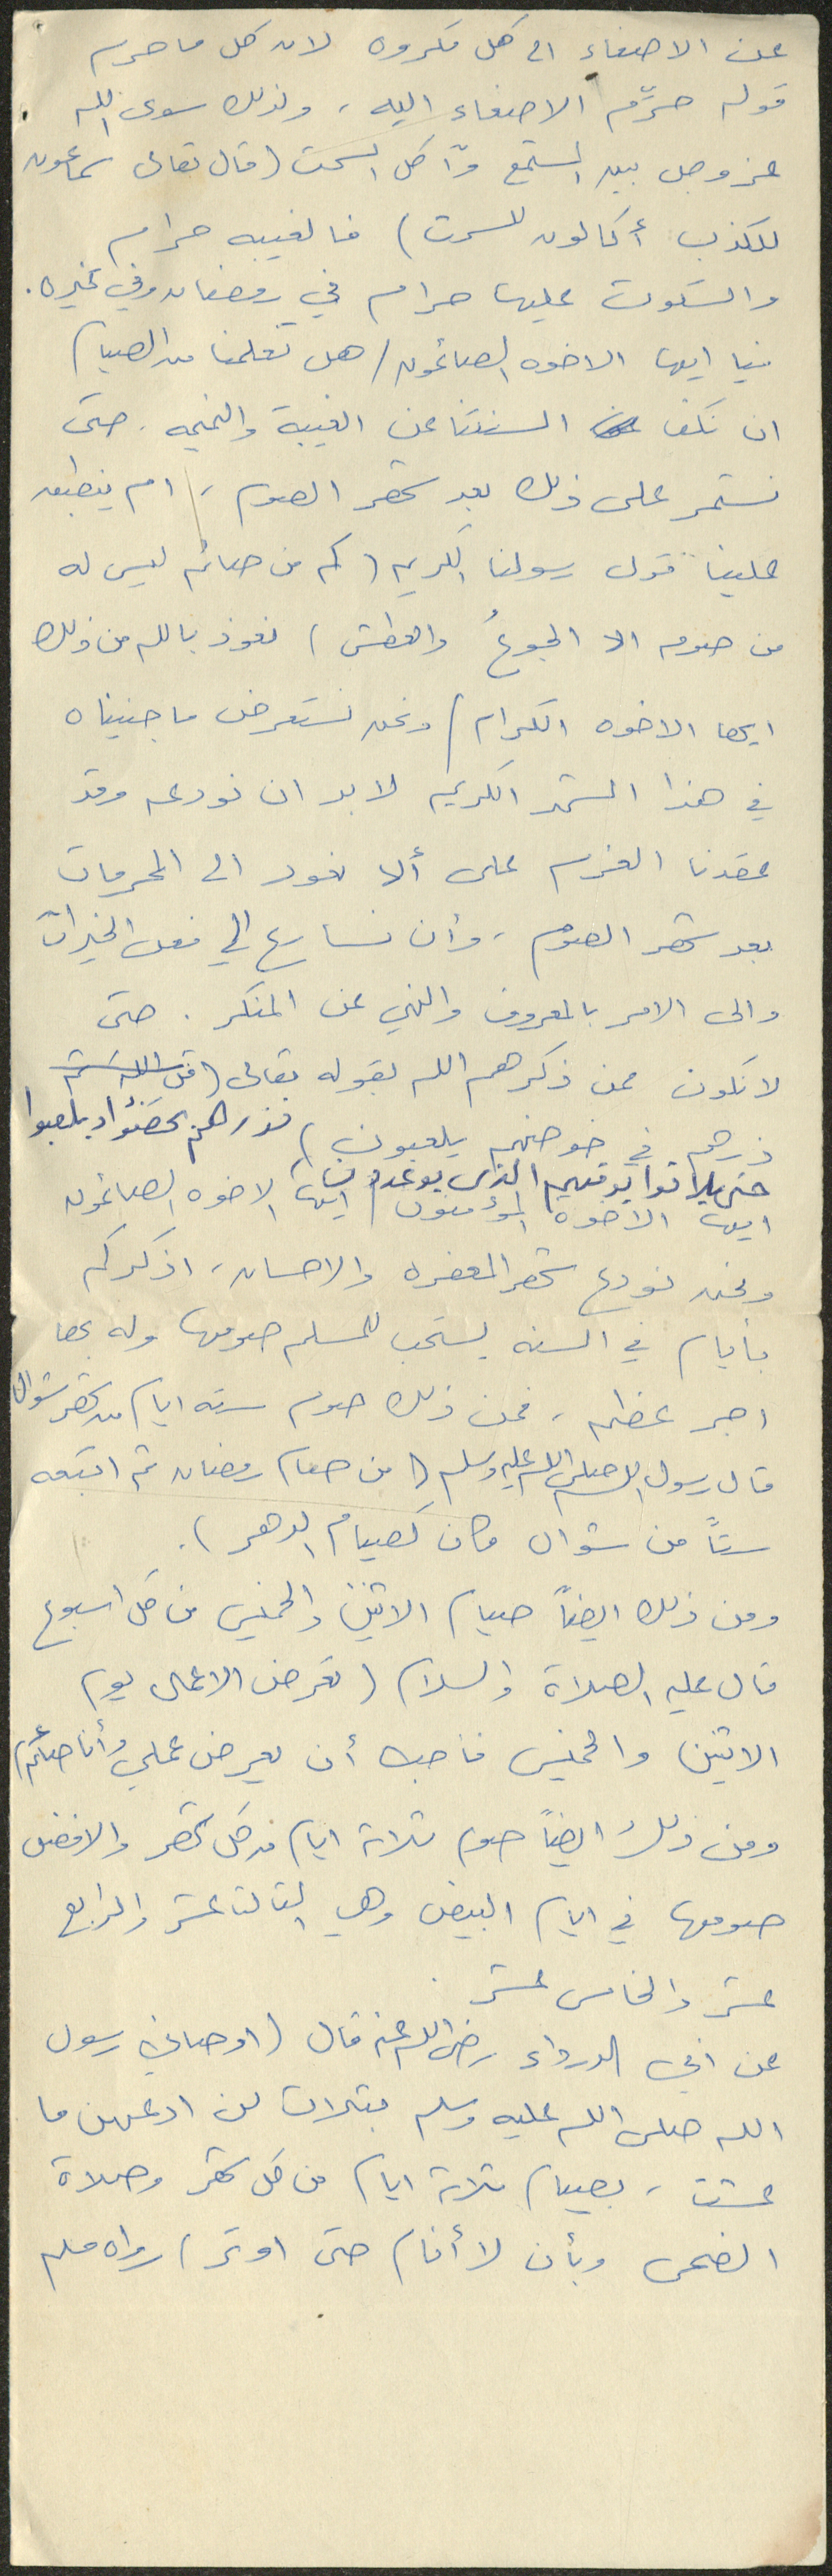 عن الاصغاء الى كل مكروه لان كل ما حرم
قوله حرّم الاصغاء اليه، ولذلك سوى الله
عز وجل بين المستمع وآكل السحت (قال تعالى سماعون
للكذب أكالون للسحت) فالغيبه حرام
والسكوت عليها حرام في رمضان وفي غيره.
فيا ايها الاخوه الصائمون/ هل تعلمنا من الصيام
ان نكف السنتنا عن الغيبة والنميمه. حتى
نستمر على ذلك بعد شهر الصوم، ام ينطبق
علينا قول رسولنا الكريم (كم من صائم ليس له
من صومه الا الجوعُ والعطش) نعوذ بالله من ذلك
ايها الاخوه الكرام/ ونحن نستعرض ما جنيناه
في هذا الشهر الكريم لا بد ان نودعه وقد
عقدنا العزم على ألا نعود الى المحرمات
بعد شهر الصوم، وأن نسارع الى فعل الخيرات
والى الامر بالمعروف والنهي عن المنكر. حتى
لا نكون ممن ذكرهم الله بقوله تعالى (قل الله ثم
ذرهم في خوضهم يلعبون) فذرهم يخوضوا ويلعبوا
حتى يلاقوا يومهم الذي يوعدون
ايها الاخوه المؤمنون/ ايها الاخوه الصائمون
ونحن نودع شهر المغفره والاحسان، اذكركم
بأيام في السنه يستحب للمسلم صومها وله بها
اجر عظيم، فمن ذلك صوم سته ايام من شهر شوال
قال رسول الله صلى الله عليه وسلم (من صام رمضان ثم اتبعه
ستاً من شوال كان كصيام الدهر).
ومن ذلك ايضاً صيام الاثنين والخميس من كل اسبوع
قال عليه الصلاة والسلام (تعرض الاعمال يوم
الاثنين والخميس فاحب أن يعرض عملي وأنا صائم)
ومن ذلك ايضاً صوم ثلاثة ايام من كل شهر والافضل
صومها في ايام البيض وهي الثالث عشر والرابع
عشر والخامس عشر.
عن ابي الدرداء رضي الله عنه قال (اوصاني رسول
الله صلى الله عليه وسلم بثلاث لن ادعهن ما
عشت، بصيام ثلاثة ايام من كل شهر وصلاة
الضحى وبأن لا أنام حتى اوتر) رواه مسلم